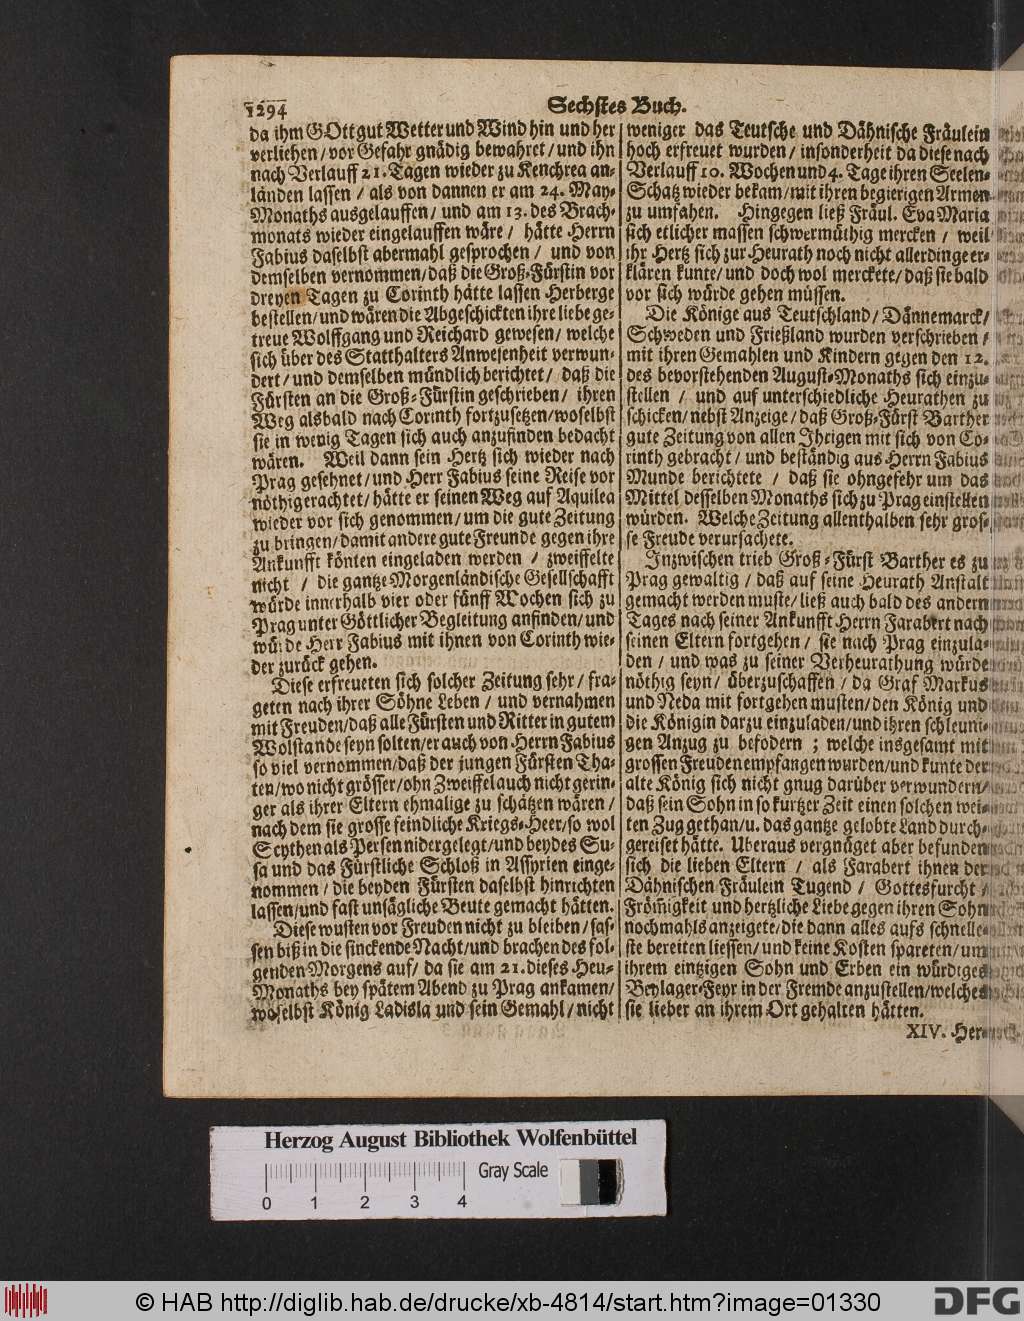 1294
Sechstes Buch.
da ihm GOtt gut Wetter und Wind hin und her
verliehen / vor Gefahr gnädig bewahret / und ihn
nach Verlauff 21. Tagen wieder zu Kenchrea an-
länden lassen / als von dannen er am 24. May-
Monaths ausgelauffen / und am 13. des Brach-
monats wieder eingelauffen wäre / hätte Herrn
Fabius daselbst abermahl gesprochen / und von
demselben vernommen / daß die Groß-Fürstin vor
dreyen Tagen zu Corinth hätte lassen Herberge
bestellen / und wären die Abgeschickten ihre liebe ge-
treue Wolffgang und Reichard gewesen / welche
sich über des Statthalters Anwesenheit verwun-
dert / und demselben mündlich berichtet / daß die
Fürsten an die Groß-Fürstin geschrieben / ihren
Weg alsbald nach Corinth fortzusetzen / woselbst
sie in wenig Tagen sich auch anzufinden bedacht
wären. Weil dann sein Hertz sich wieder nach
Prag gesehnet / und Herr Fabius seine Reise vor
nöthig erachtet / hätte er seinen Weg auf Aquilea
wieder vor sich genommen / um die gute Zeitung
zu bringen / damit andere gute Freunde gegen ihre
Ankunfft könten eingeladen werden / zweiffelte
nicht / die gantze Morgenländische Gesellschafft
würde innerhalb vier oder fünff Wochen sich zu
Prag unter Göttlicher Begleitung anfinden / und
würde Herr Fabius mit ihnen von Corinth wie-
der zurück gehen.
Diese erfreueten sich solcher Zeitung sehr / fra-
geten nach ihrer Söhne Leben / und vernahmen
mit Freuden / daß alle Fürsten und Ritter in gutem
Wolstande seyn solten / er auch von Herrn Fabius
so viel vernommen / daß der jungen Fürsten Tha-
ten / wo nicht grösser / ohn Zweiffel auch nicht gerin-
ger als ihrer Eltern ehmalige zu schätzen wären /
nach dem sie grosse feindliche Kriegs-Heer / so wol
Scythen als Persen nidergelegt / und beydes Su-
sa und das Fürstliche Schloß in Assyrien einge-
nommen / die beyden Fürsten daselbst hinrichten
lassen / und fast unsägliche Beute gemacht hätten.
Diese wusten vor Freuden nicht zu bleiben / sas-
sen biß in die sinckende Nacht / und brachen des fol-
genden Morgens auf / da sie am 21. dieses Heu-
Monaths bey spätem Abend zu Prag ankamen /
woselbst König Ladisla und sein Gemahl / nicht
weniger das Teutsche und Dähnische Fräulein
hoch erfreuet wurden / insonderheit da diese nach
Verlauff 10. Wochen und 4. Tage ihren Seelen-
Schatz wieder bekam / mit ihren begierigen Armen
zu umfahen. Hingegen ließ Fräul. Eva Maria
sich etlicher massen schwermüthig mercken / weil
ihr Hertz sich zur Heurath noch nicht allerdinge er-
klären kunte / und doch wol merckete / daß sie bald
vor sich würde gehen müssen.
Die Könige aus Teutschland / Dännemarck /
Schweden und Frießland wurden verschrieben /
mit ihren Gemahlen und Kindern gegen den 12.
des bevorstehenden August-Monaths sich einzu-
stellen / und auf unterschiedliche Heurathen zu
schicken / nebst Anzeige / daß Groß-Fürst Barther
gute Zeitung von allen Ihrigen mit sich von Co-
rinth gebracht / und beständig aus Herrn Fabius
Munde berichtete / daß sie ohngefehr um das
Mittel desselben Monaths sich zu Prag einstellen
würden. Welche Zeitung allenthalben sehr gros-
se Freude verursachete.
Inzwischen trieb Groß-Fürst Barther es zu
Prag gewaltig / daß auf seine Heurath Anstalt
gemacht werden muste / ließ auch bald des andern
Tages nach seiner Ankunfft Herrn Farabert nach
seinen Eltern fortgehen / sie nach Prag einzula-
den / und was zu seiner Verheurathung würde
nöthig seyn / überzuschaffen / da Graf Markus
und Neda mit fortgehen musten / den König und
die Königin darzu einzuladen / und ihren schleuni-
gen Anzug zu befodern ; welche insgesamt mit
grossen Freuden empfangen wurden / und kunte der
alte König sich nicht gnug darüber verwundern /
daß sein Sohn in so kurtzer Zeit einen solchen wei-
ten Zug gethan / u. das gantze gelobte Land durch-
gereiset hätte. Uberaus vergnüget aber befunden
sich die lieben Eltern / als Farabert ihnen der
Dähnischen Fräulein Tugend / Gottesfurcht /
Fröm̃igkeit und hertzliche Liebe gegen ihren Sohn
nochmahls anzeigete / die dann alles aufs schnelle-
ste bereiten liessen / und keine Kosten spareten / um
ihrem eintzigen Sohn und Erben ein würdiges
Beylager-Feyr in der Fremde anzustellen / welches
sie lieber an ihrem Ort gehalten hätten.
XIV. Her-
Herzog August Bibliothek Wolfenbüttel
Gray Scale
0 1 2 3 4
© HAB http://diglib.hab.de/drucke/xb-4814/start.htm?image=01330
DFG